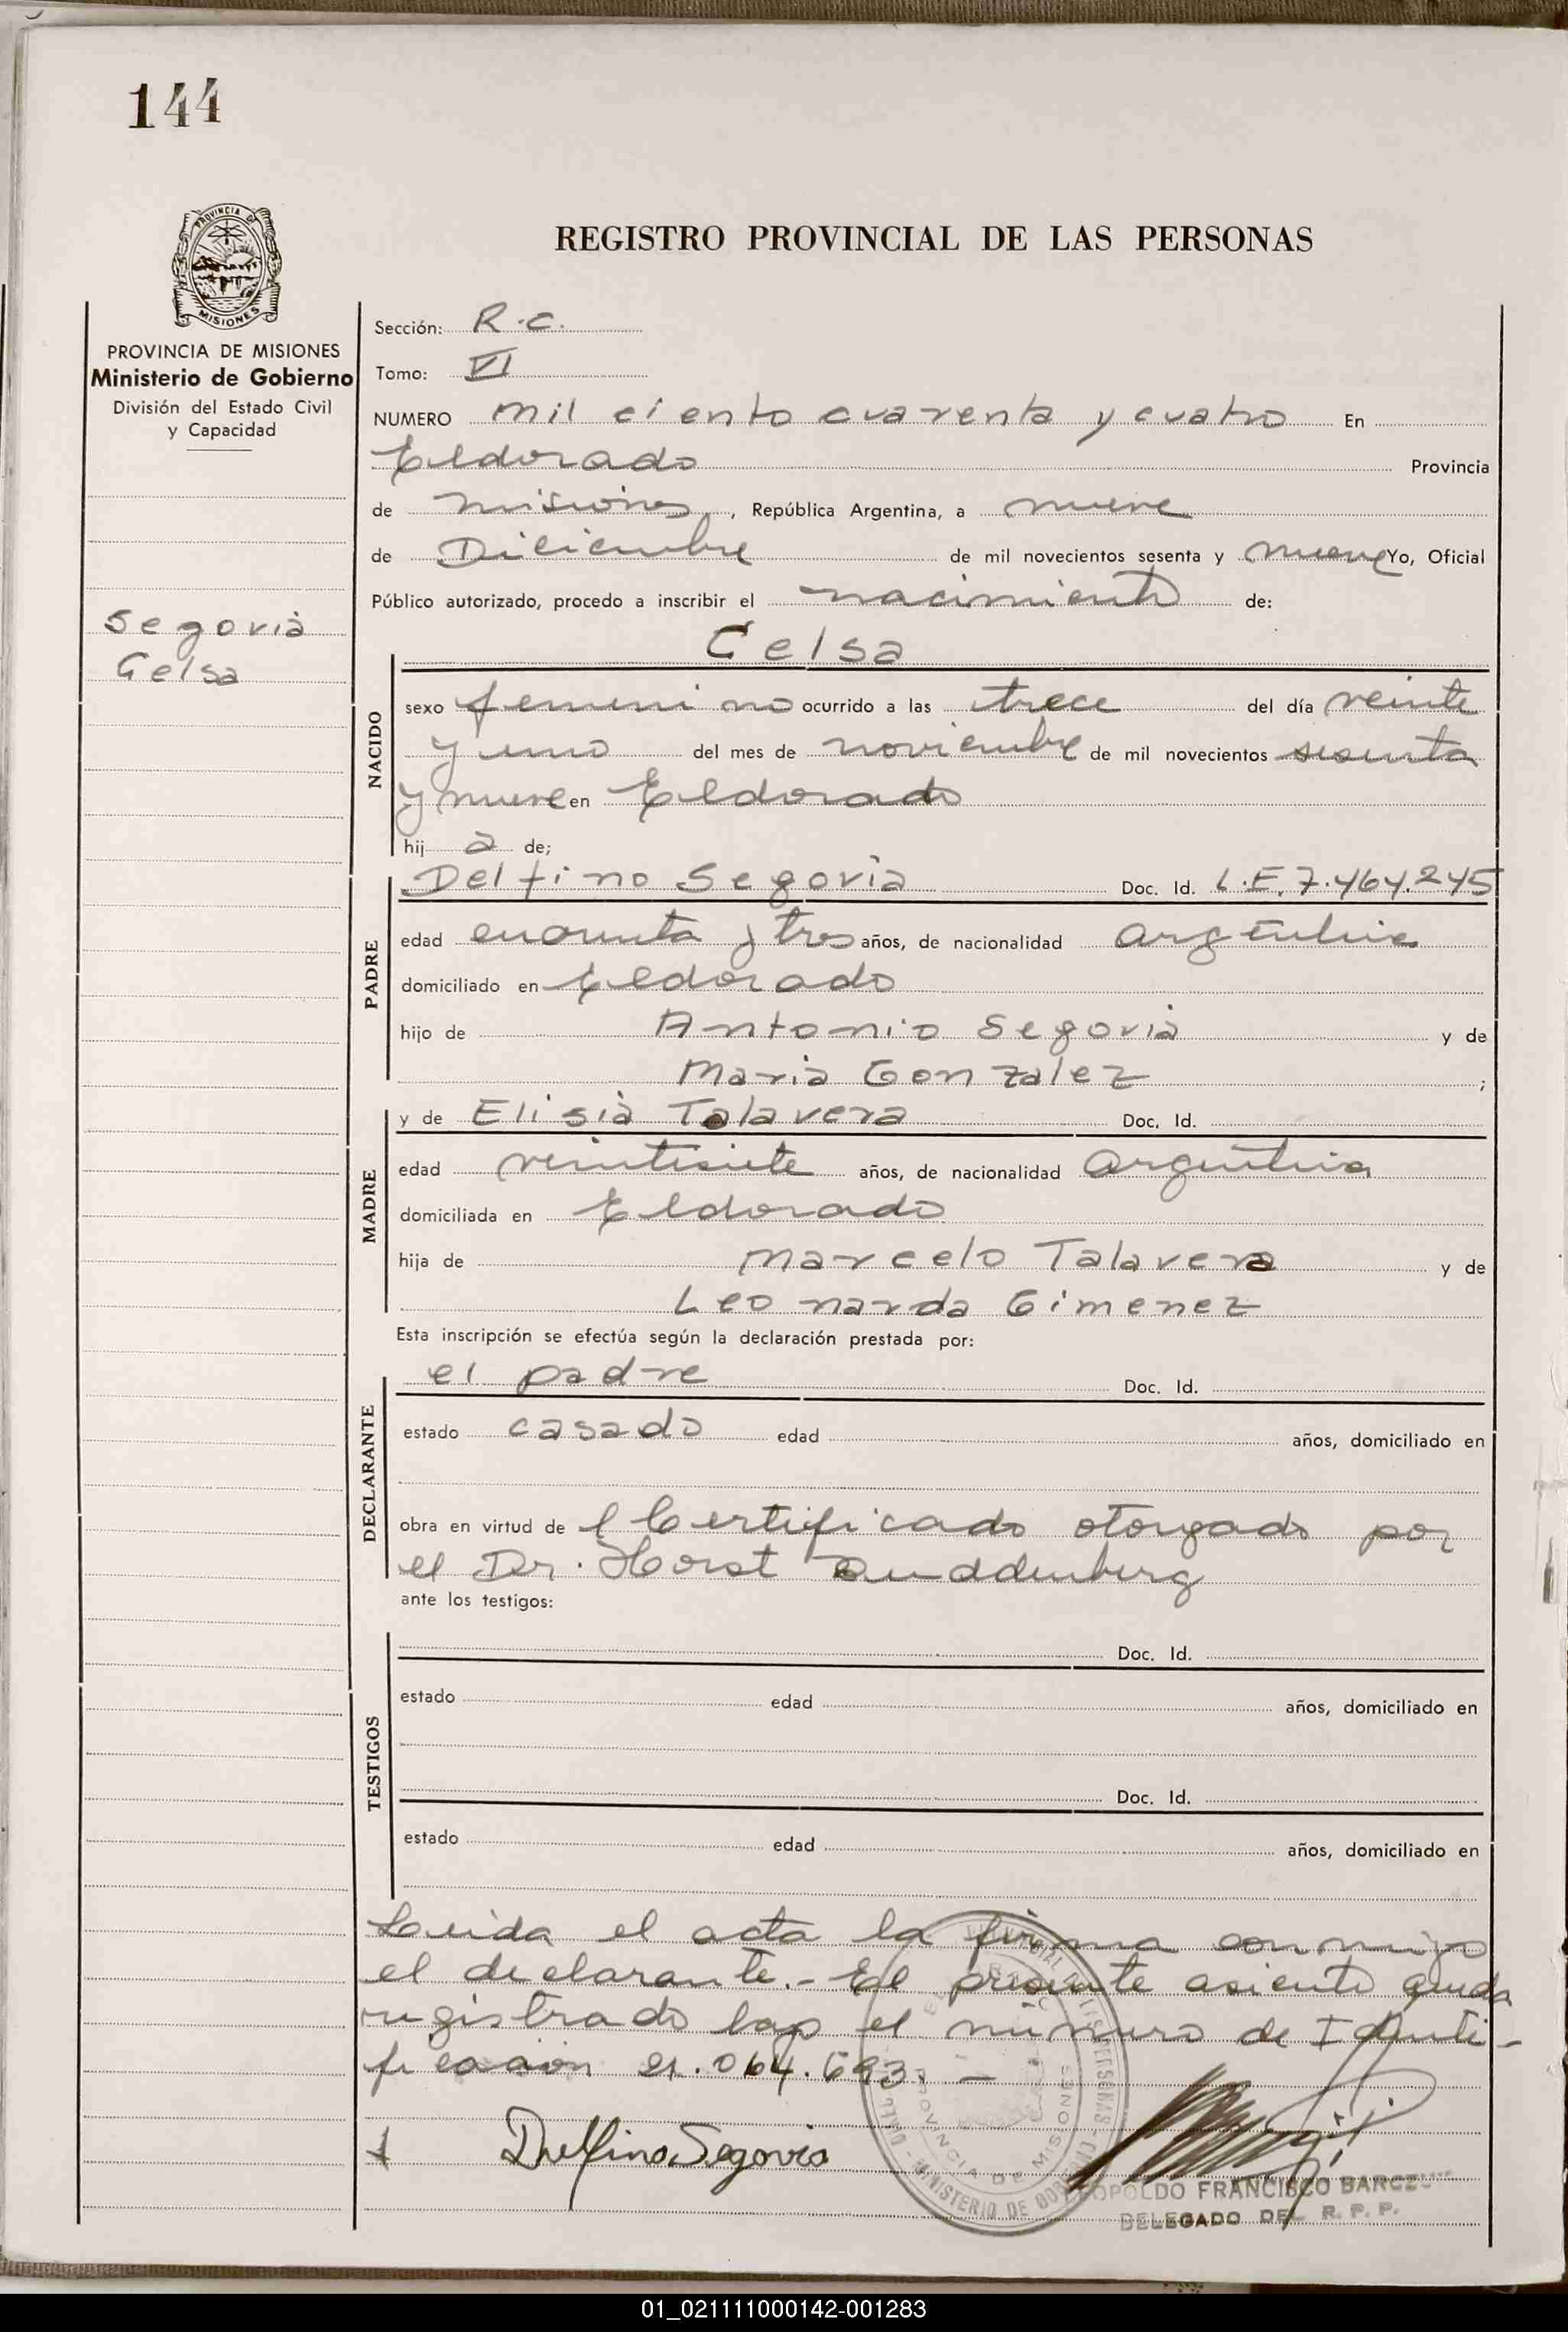 144
PROVINCIA DE
MISIONES
REGISTRO PROVINCIAL DE LAS PERSONAS
PROVINCIA DE MISIONES
Ministerio de Gobierno
División del Estado Civil
y Capacidad
Segovia
Celsa
Sección: R.C.
Tomo: VI
NUMERO mil ciento cuarenta y cuatro En
Eldorado Provincia
de misiones, República Argentina, a nueve
de Diciembre de mil novecientos sesenta y nueve Yo, Oficial
Público autorizado, procedo a inscribir el nacimiento de:
Celsa
NACIDO
sexo femenino ocurrido a las trece del día veinte
y uno del mes de noviembre de mil novecientos sesenta
y nueve en Eldorado
hij a de;
PADRE
Delfino Segovia Doc. Id. L.E. 7.464.245
edad cuarenta y tres años, de nacionalidad argentina
domiciliado en Eldorado
hijo de Antonio Segovia y de
Maria Gonzalez ;
MADRE
y de Elisia Talavera Doc. Id.
edad veintisiete años, de nacionalidad argentina
domiciliada en Eldorado
hija de Marcelo Talavera y de
Leonarda Gimenez
Esta inscripción se efectúa según la declaración prestada por:
DECLARANTE
el padre Doc. Id.
estado casado edad años, domiciliado en
obra en virtud de Certificado otorgado por
el Dr. Horst
ante los testigos:
TESTIGOS
Doc. Id.
estado edad años, domiciliado en
Doc. Id.
estado edad años, domiciliado en
Leida el acta la firma conmigo
el declarante.- El presente asiento queda
registrado bajo el número de Identi-
ficación 21.064.693. -
Delfino Segovia
PROVINCIA DE MISIONES
MINISTERIO DE
LEOPOLDO FRANCISCO
DELEGADO DEL R. P. P.
01_021111000142-001283